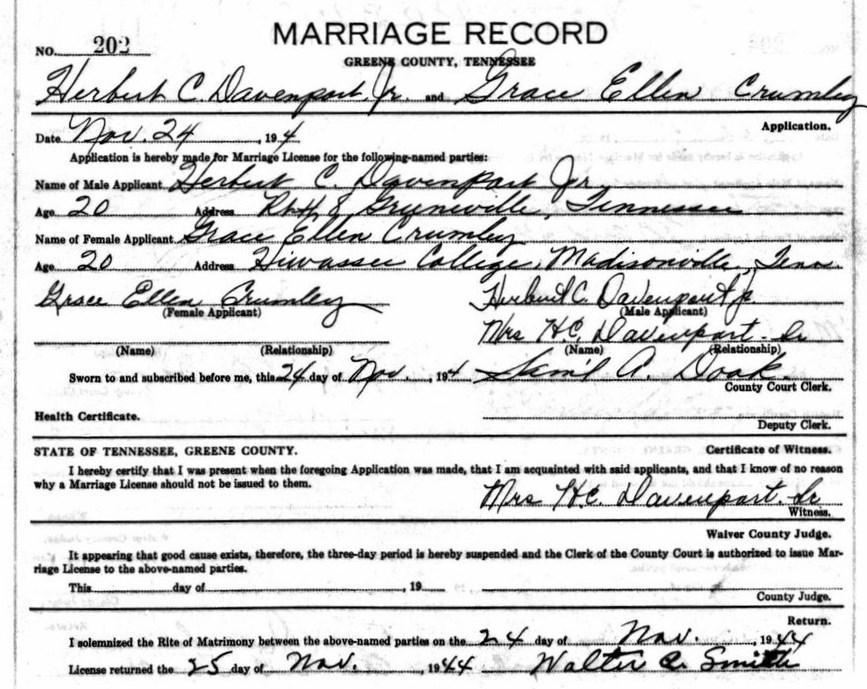 MARRIAGE RECORD
NO. 202
GREENE COUNTY, TENNESSEE
Herbert C. Davenport Jr. and Grace Ellen Crumley
Application.
Date Nov. 24, 194
Application is hereby made for Marriage License for the following-named parties:
Name of Male Applicant Herbert C. Davenport Jr.
Age 20 Address Greeneville, Tennessee
Name of Female Applicant Grace Ellen Crumley
Age 20 Address Hiwassee College, Madisonville, Tenn.
Grace Ellen Crumley Herbert C. Davenport Jr
(Female Applicant) (Male Applicant)
Mrs H.C. Davenport Sr
(Name) (Relationship) (Name) (Relationship)
Sworn to and subscribed before me, this 24 day of Nov., 194 A. Doak
County Court Clerk.
Health Certificate.
Deputy Clerk.
STATE OF TENNESSEE, GREENE COUNTY. Certificate of Witness.
I hereby certify that I was present when the foregoing Application was made, that I am acquainted with said applicants, and that I know of no reason
why a Marriage License should not be issued to them.
Mrs H.C. Davenport. Sr
Witness.
Waiver County Judge.
It appearing that good cause exists, therefore, the three-day period is hereby suspended and the Clerk of the County Court is authorized to issue Mar-
riage License to the above-named parties.
This day of , 19
County Judge.
Return.
I solemnized the Rite of Matrimony between the above-named parties on the 24 day of Nov., 1944
License returned the 25 day of Nov. 1944 Walter Smith